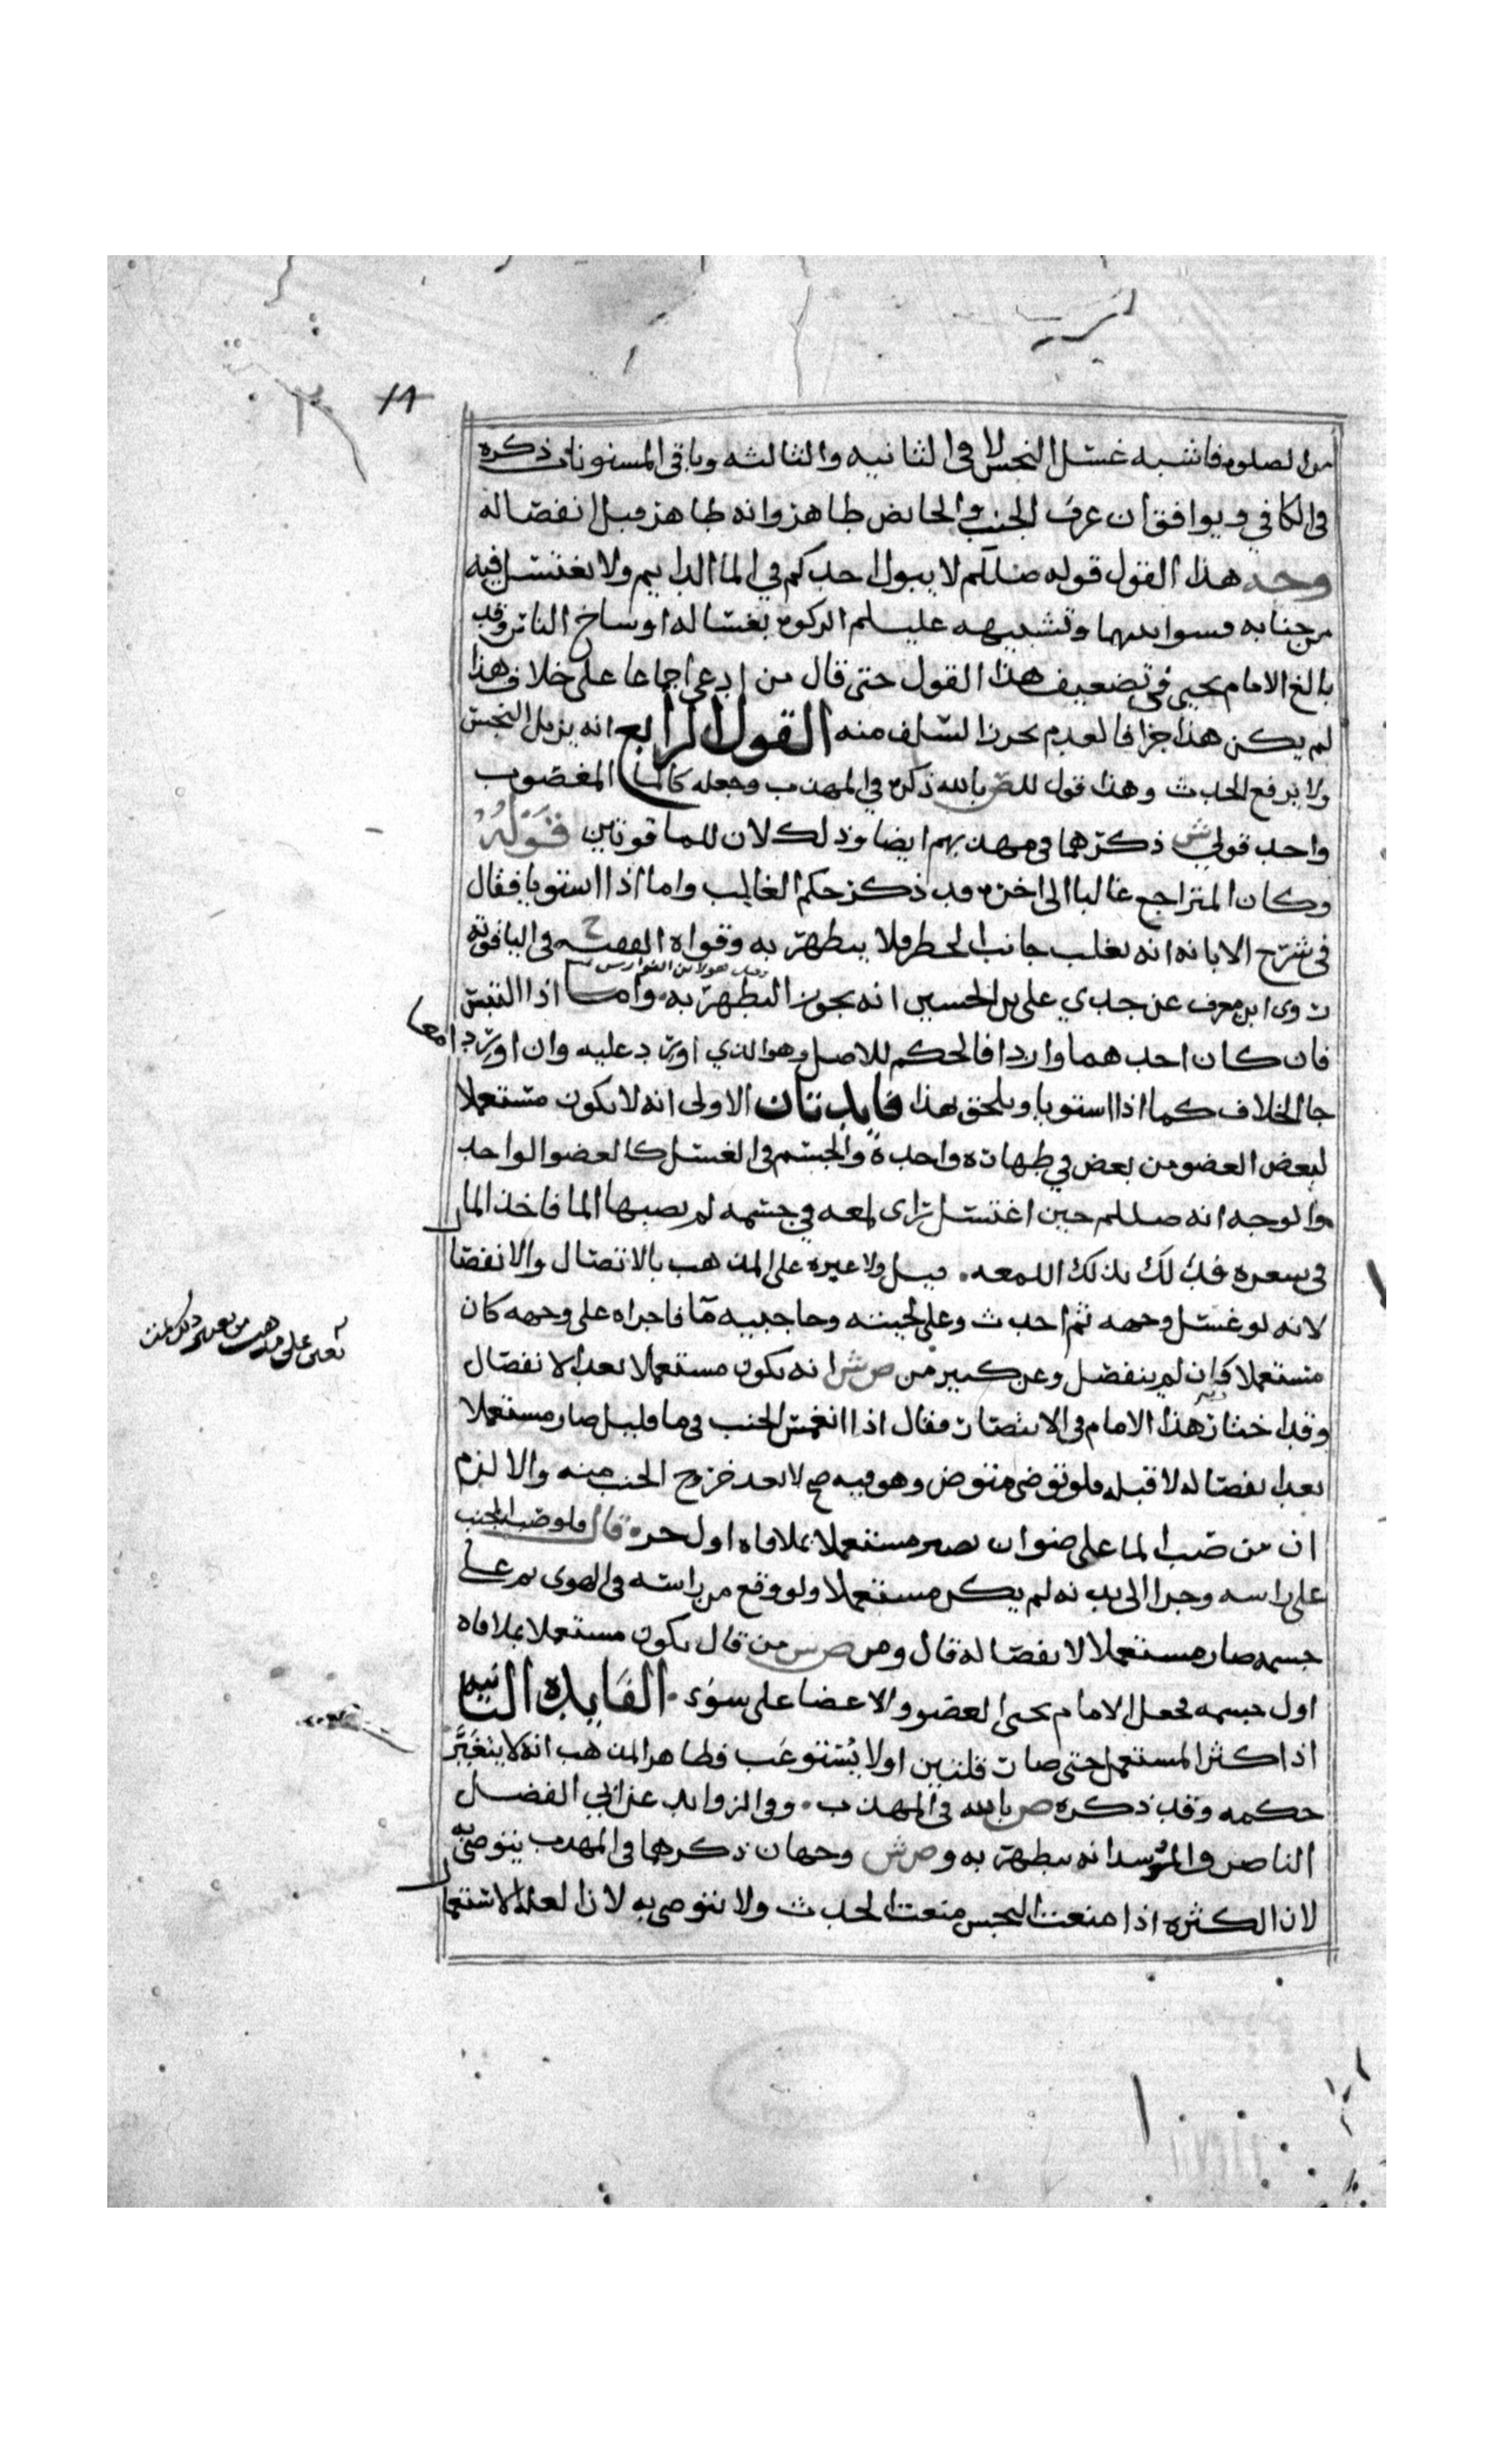 ١٨
من الصلوه فاشبه غسل النجس لا في الثانيه والثالثه وباقي المسنونات ذكره
في الكافي ويوافق ان عرق الجنب والحايض طاهر وانه طاهر قبل انفصاله
وجه هذا القول قوله صللم لا يبول احدكم في الما الدايم ولا يغتسل فيه
من جنابه فسوا بينهما وتشبيهه عليلم الزكوه بغساله اوساخ الناس وقد
بالغ الامام يحيى في تضعيف هذا القول حتى قال من ادعى اجماعا على خلاف هذا
لم يكن هذا جزافا لعدم تحرز السلف منه القول الرابع انه يزيل النجس
ولا يرفع الحدث وهذا قول للص بالله ذكره في المهذب وجعله كالما المغصوب
واحد قولي ش ذكرهما في مهذبهم ايضا وذلك لان للما قوتين قوله
وكان المتراجع غالبا الى اخره قد ذكر حكم الغالب واما اذا استويا فقال
في شرح الابانه انه يغلب جانب الحظر فلا يتطهر به وقواه الفقيه ح في الياقوته
وروى ابن معرف عن جدي علي بن الحسين انه يجوز التطهر به واما اذا التبس
فان كان احدهما واردا فالحكم للاصل وهو الذي اورد عليه وان اوردا معا
جا الخلاف كما اذا استويا ويلحق بهذا فايدتان الاولى انه لا يكون مستعملا
لبعض العضو من بعض في طهاره واحدة والجسم في الغسل كالعضو الواحد
والوجه انه صللم حين اغتسل راى لمعه في جسمه لم يصبها الما فاخذ الما
في شعره فدلك بذلك اللمعه قيل ولا عبره على المذهب بالاتصال والانفصا
لانه لو غسل وجهه ثم احدث وعلى لحيته وحاجبيه ما فاجراه على وجهه كان
مستعملا وان لم ينفصل وعن كبير من ص ش انه يكون مستعملا بعد الانفصال
وقد اختار هذا الامام في الانتصار فقال اذا انغمس الجنب في ما قليل صار مستعملا
بعد انفصاله لا قبله فلو توضى متوض وهو فيه صح لا بعد خروج الجنب منه والا لزم
ان من صب الما على عضو ان يصير مستعملا بملاقاه اول جزء قال فلو صب الجنب
على راسه وجرا الى بدنه لم يكن مستعملا ولو وقع من راسه في الهوى ثم على
جسمه صار مستعملا لانفصاله قال ومن ص ش من قال يكون مستعملا بملاقاه
اول جسمه فجعل الامام يحيى العضو والاعضا على سوى الفايده الثانيه
اذا كثر المستعمل حتى صار قلتين او لا يستوعب فظاهر المذهب انه لا يتغير
حكمه وقد ذكره ص بالله في المهذب وفي الزوايد عن ابي الفضل
الناصر والمرشد انه يتطهر به و ص ش وجهان ذكرهما في المهذب يتوضى به
لان الكثره اذا منعت النجس منعت الحدث ولا يتوضى به لازالعله الاستعما